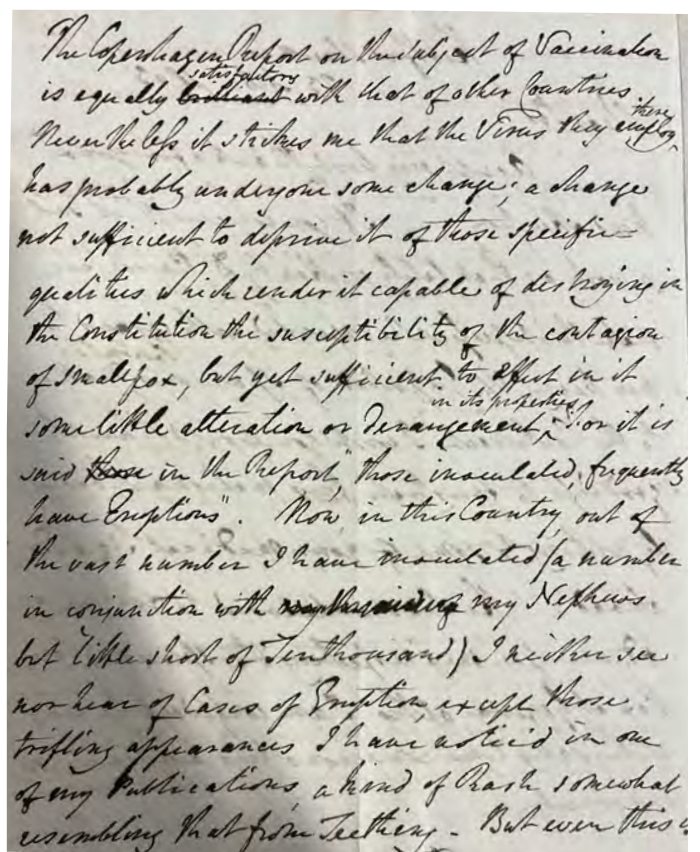 The Copenhagen Report on the subject of Vaccination
satisfactory
is equally brilliant with that of other Countries
there
Nevertheless it strikes me that the Virus they employ
has probably undergone some change; a change
not sufficient to deprive it of those specific
qualities which render it capable of destroying in
the Constitution the susceptibility of the contagion
of smallpox, but yet sufficient to effect in it
in its properties
some little alteration or derangement, For it is
said those in the Report, "those inoculated, frequently
have Eruptions". Now, in this Country, out of
the vast number I have inoculated (a number
in conjunction with my Nephews
but little short of Ten thousand) I neither see
nor hear of Cases of Eruption, except those
trifling appearances I have noticed in one
of my Publications, a kind of Rash somewhat
resembling that from Teething - But even this is